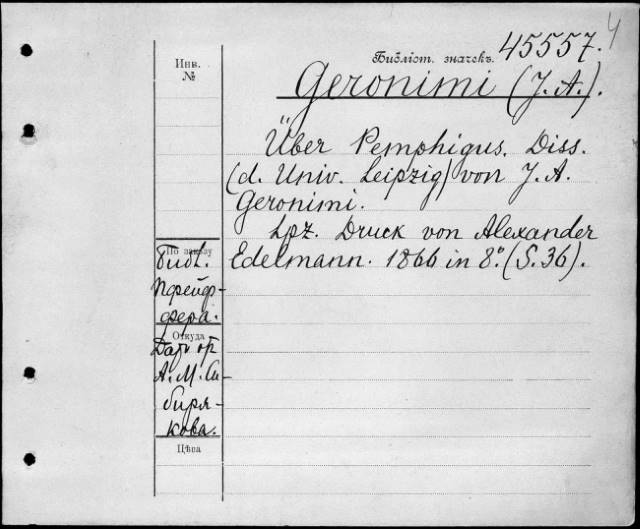 4
Библіот. значекъ. 45557.
Инв.
№
Geronimi (J. A.).
Über Pemphigus. Diss.
(d. Univ. Leipzig) von J. A.
Geronimi.
Lpz. Druck von Alexander
Edelmann. 1866 in 8º. (S. 36).
По заказу
Библ.
Пфейф-
фера.
Откуда
Даръ от
А. М. Си-
биря-
кова.
Цѣна